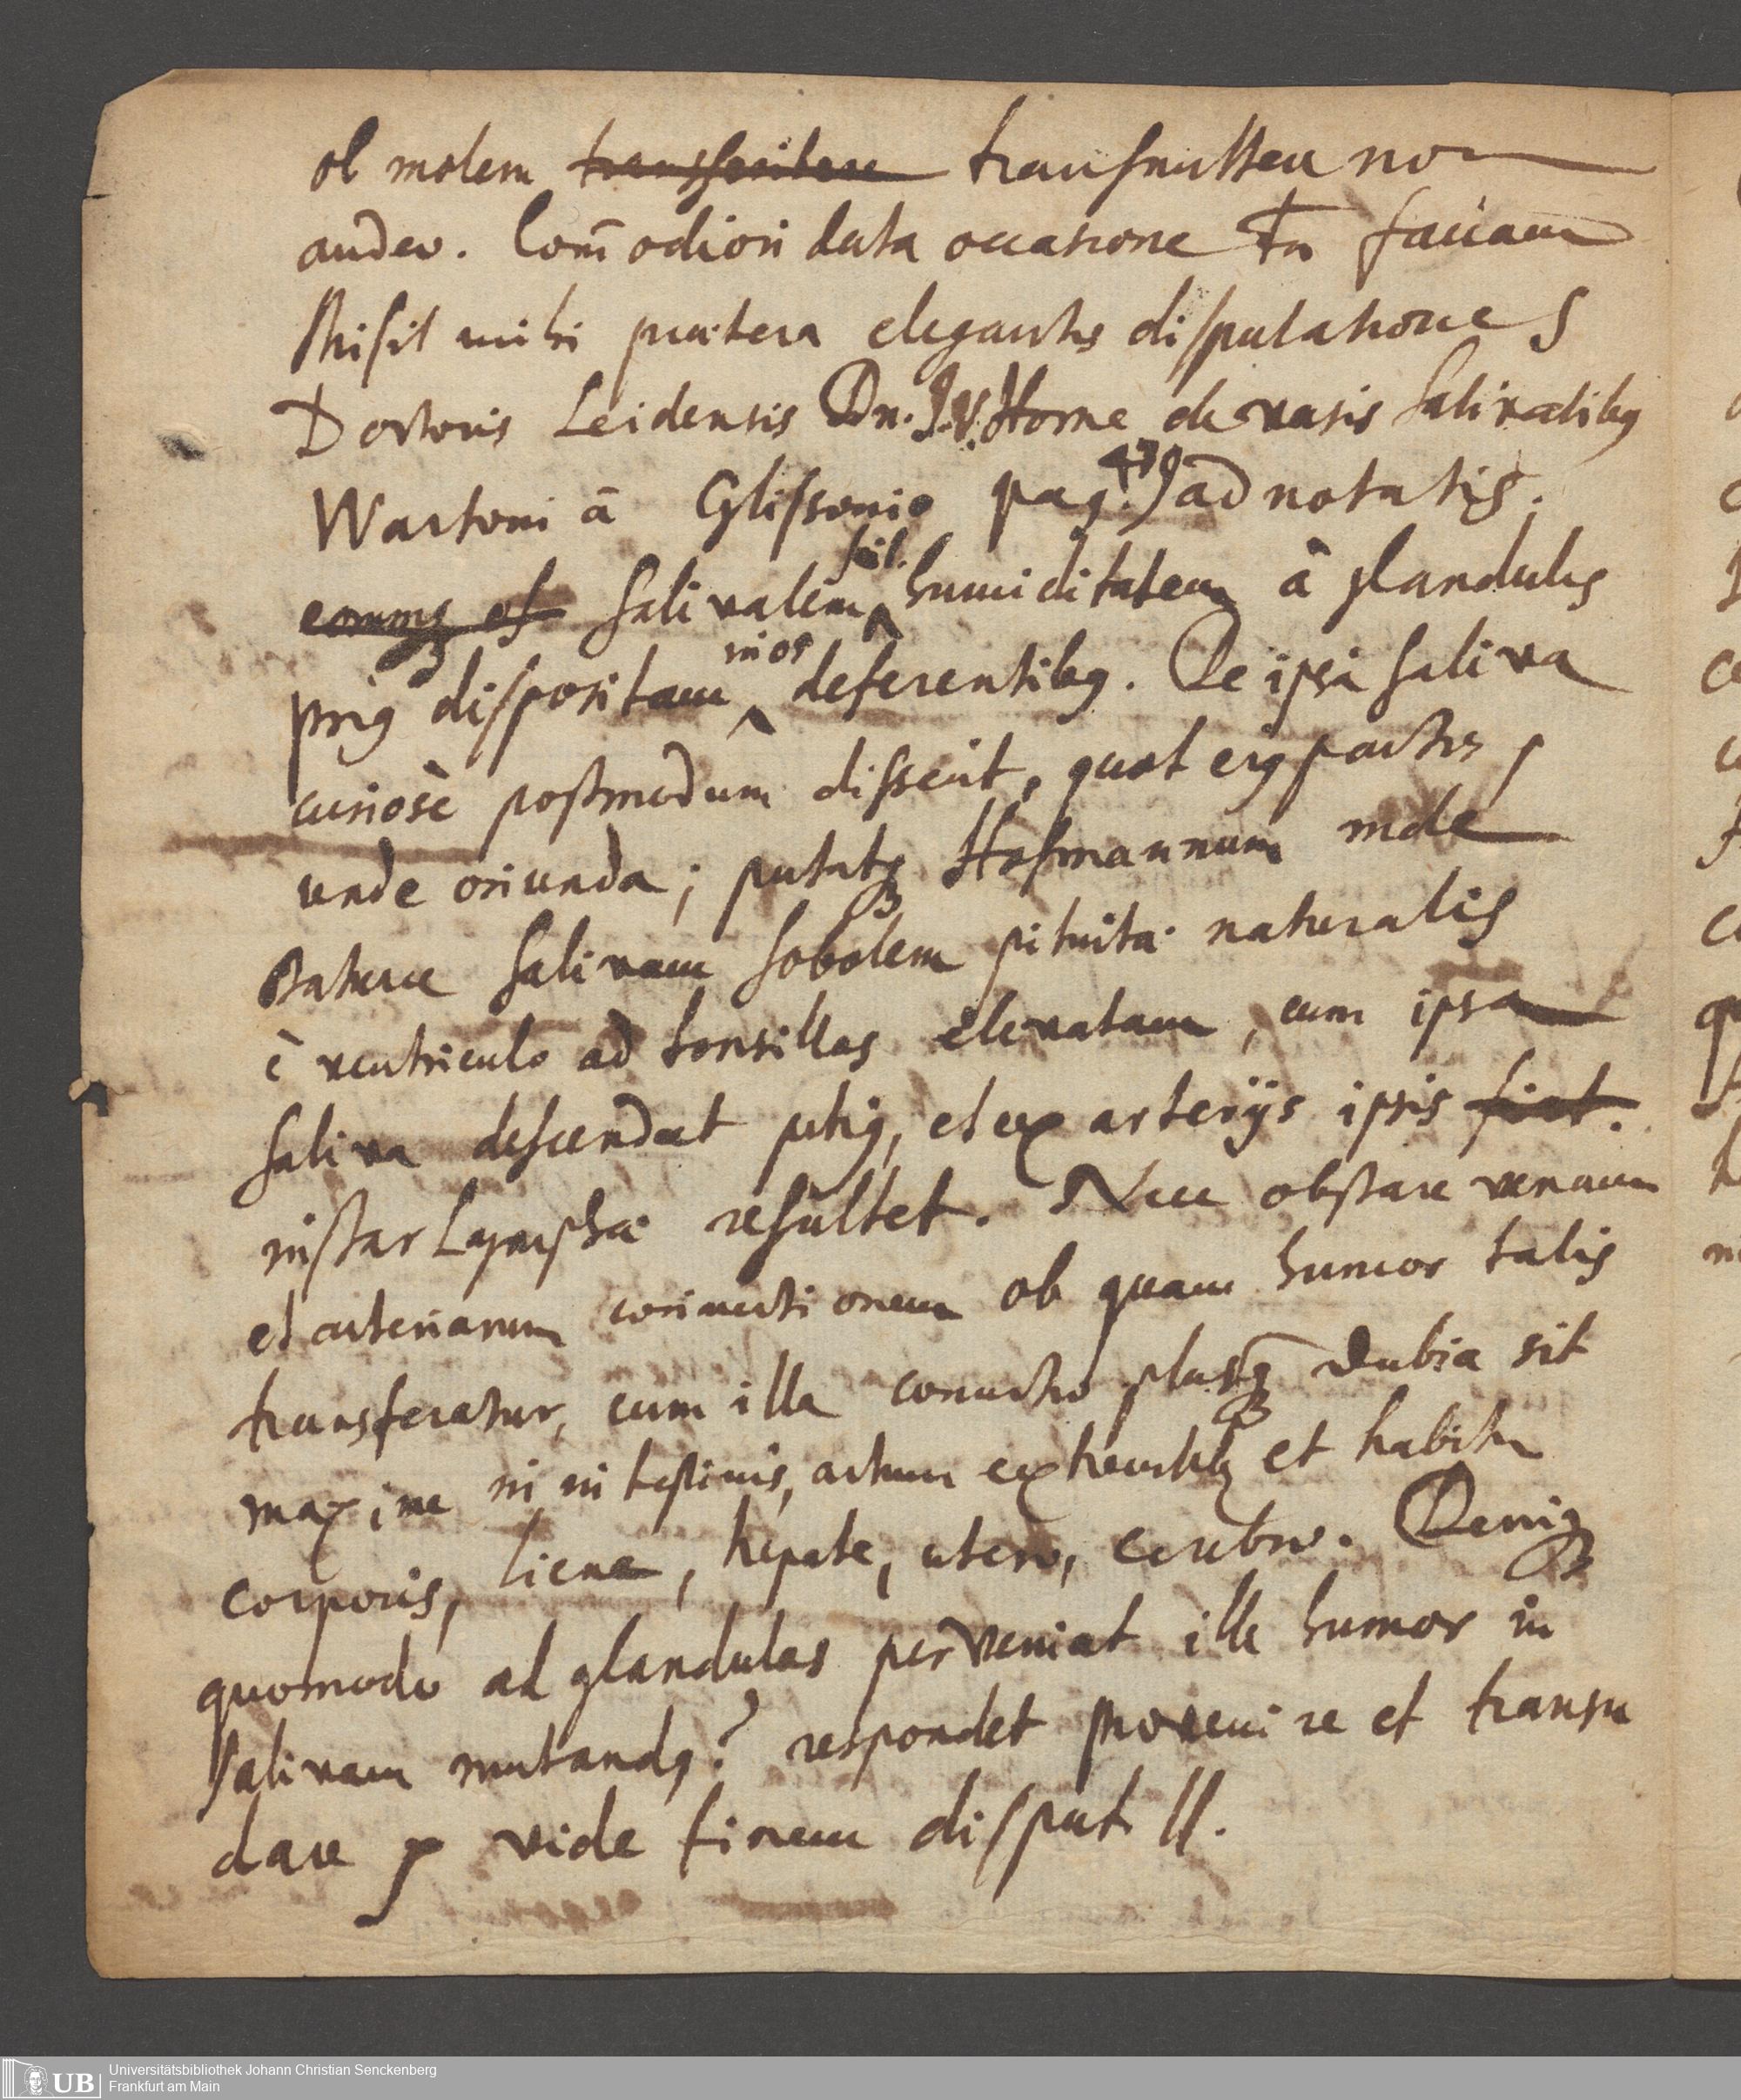 ob molem transscribere transmittere non
audeo. Com̄odiori data occasione tn̄ faciam
Misit mihi præterea elegantes disputationes
Doctoris Leidensis Dn. J. V. Horne de vasis salivalibꝰ
Wartoni à Glissonio pag. 439) adnotatis.
eorumqꝫ os salivalem scil. humiditatem à glandulis
priꝰ dispositam in os deferentibꝰ. De ipsa saliva
curiosè postmodum disserit, quot eiꝰ partes,
unde oriunda; putatqꝫ Hofmannum male
statuere salivam sobolem pituitæ naturalis
è ventriculo ad tonsillas elevatam, cum ipsa
saliva descendat potiꝰ, et ex arterijs ipsis fiat.
instar Lymphæ resultet. Nec obstare venarum
et arteriarum coniunctionem ob quam humor talis
transferatur, cum illa coniunctio plusqꝫ dubia sit
maxime in intestinis, artuum extremitatibꝰ et habitu
corporis, liene, hepate, utero, cerebro. Deniqꝫ
quomodo ad glandulas perveniat ille humor in
salivam mutandꝰ? respondet provenire et transu
dare p vide finem disput. II.
Universitätsbibliothek Johann Christian Senckenberg
Frankfurt am Main
UB